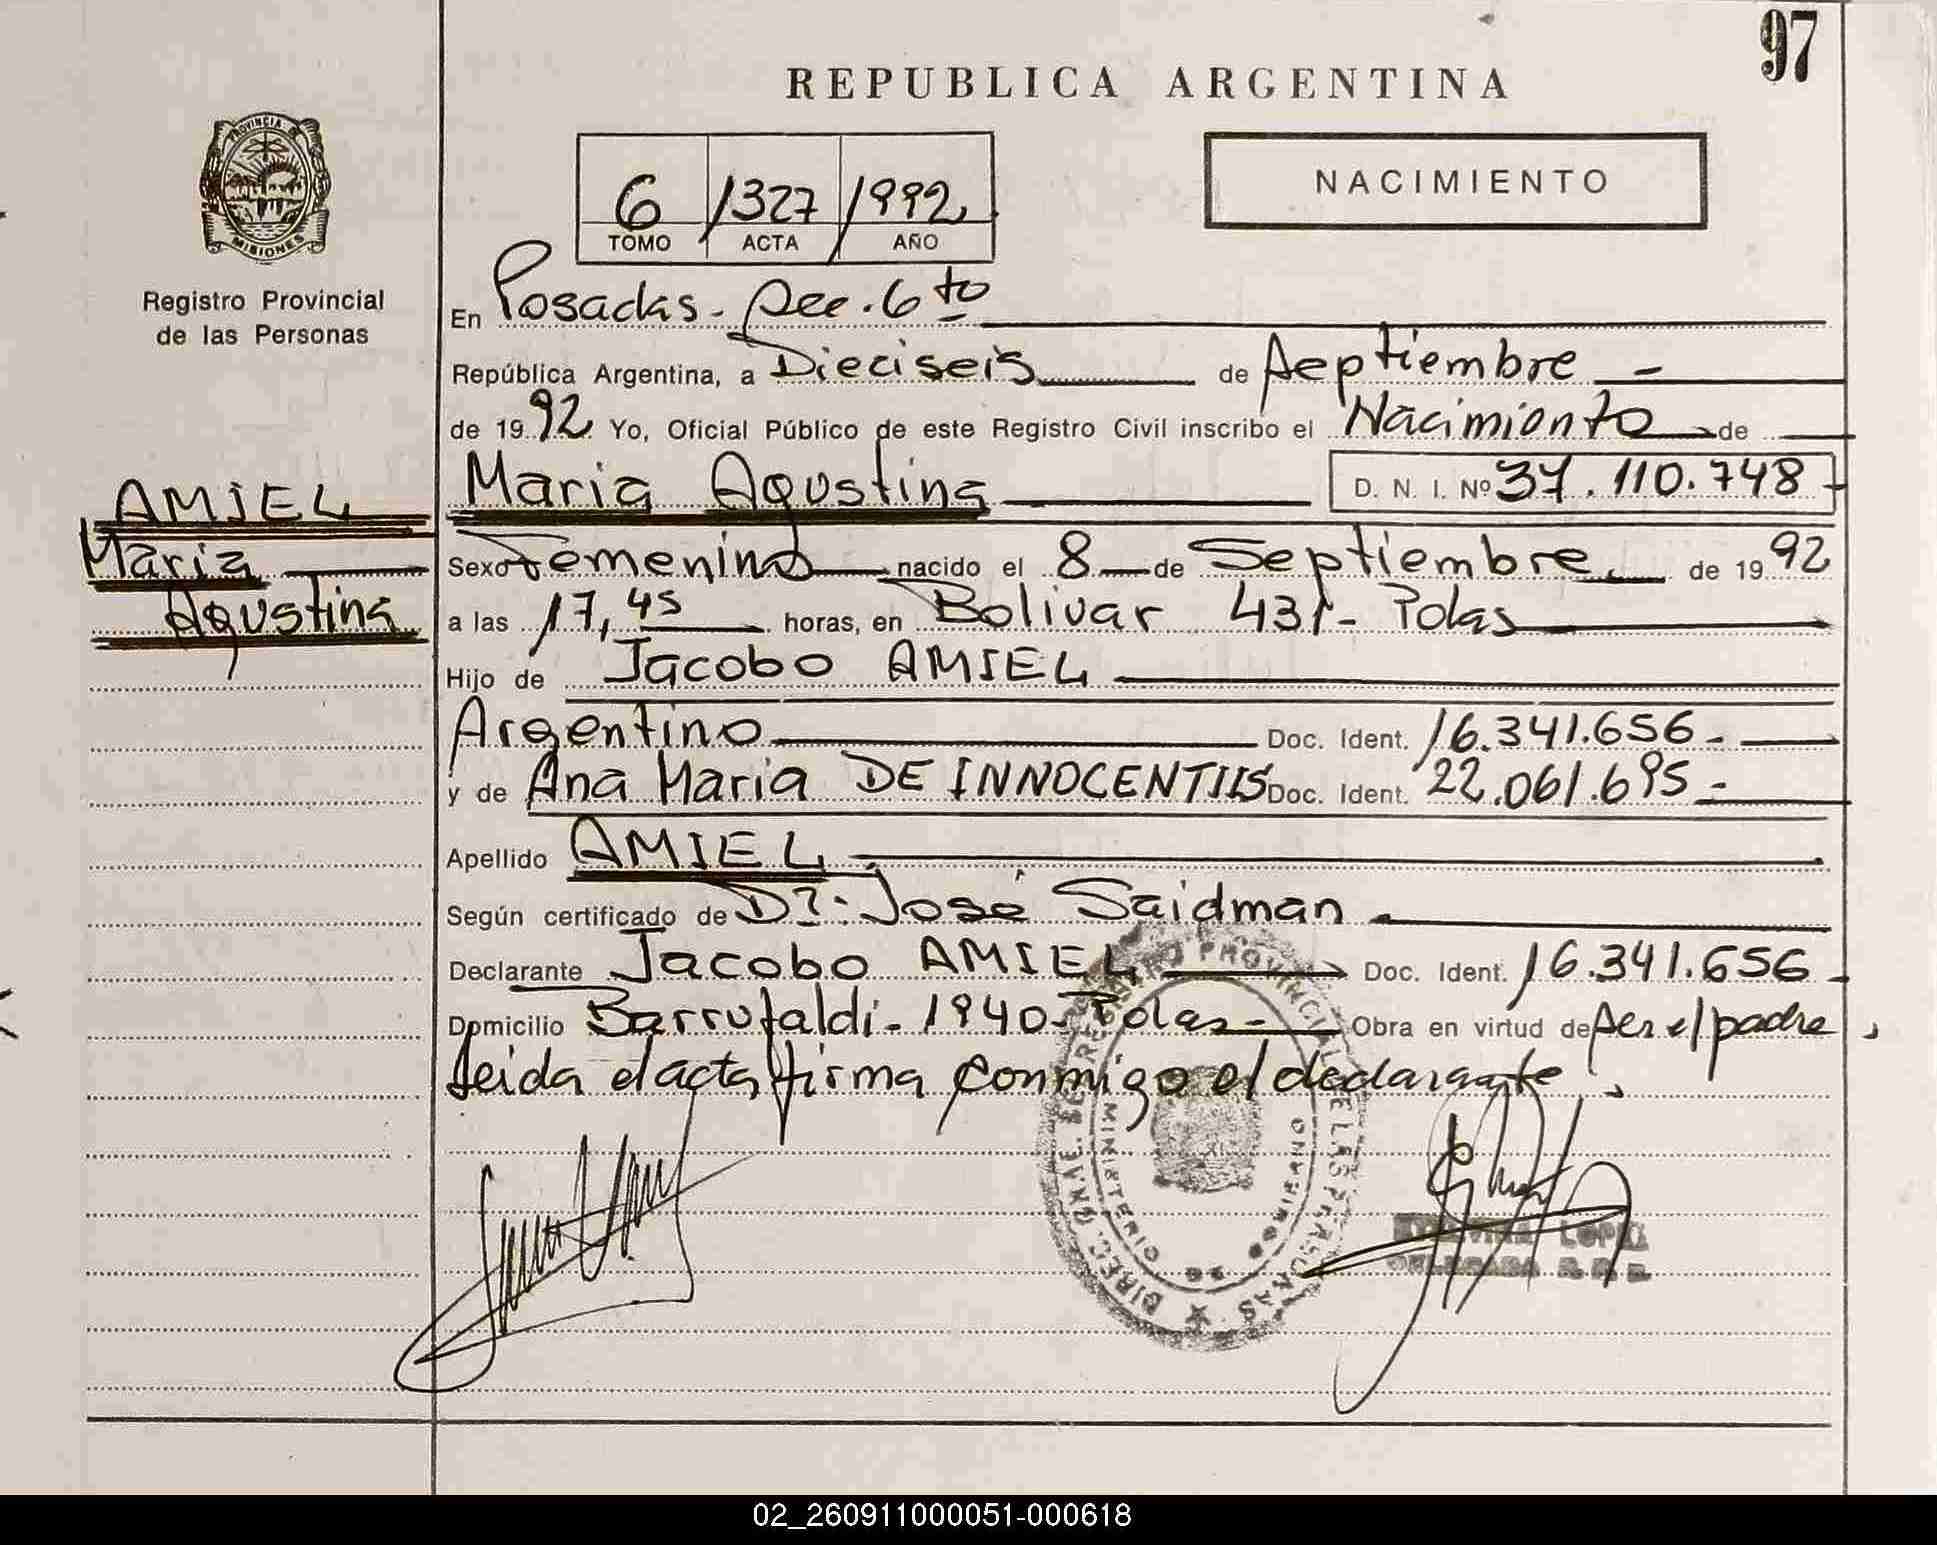 97
REPUBLICA ARGENTINA
PROVINCIA DE
MISIONES
Registro Provincial
de las Personas
6 1327 1992
TOMO ACTA AÑO
NACIMIENTO
En Posadas - Sec. 6to
República Argentina, a Dieciseis de Septiembre -
de 1992 Yo, Oficial Público de este Registro Civil inscribo el Nacimiento de
AMIEL
Maria
Agustina
Maria Agustina D. N. I. Nº 37.110.748
Sexo Femenino nacido el 8 de Septiembre de 1992
a las 17,45 horas, en Bolivar 431 - Pdas
Hijo de Jacobo AMIEL
Argentino Doc. Ident. 16.341.656 -
y de Ana Maria DE INNOCENTIIS Doc. Ident. 22.061.695 -
Apellido AMIEL
Según certificado de Dr. José Saidman
Declarante Jacobo AMIEL Doc. Ident. 16.341.656 -
Domicilio Barrufaldi - 1940 - Pdas - Obra en virtud de ser el padre,
leida el acta, firma conmigo el declarante.
DIREC. GRAL. DE REGISTRO PROVINCIAL DE LAS PERSONAS
MINISTERIO DE GOBIERNO
LOPEZ
DELEGADA R.P.P.
02_260911000051-000618